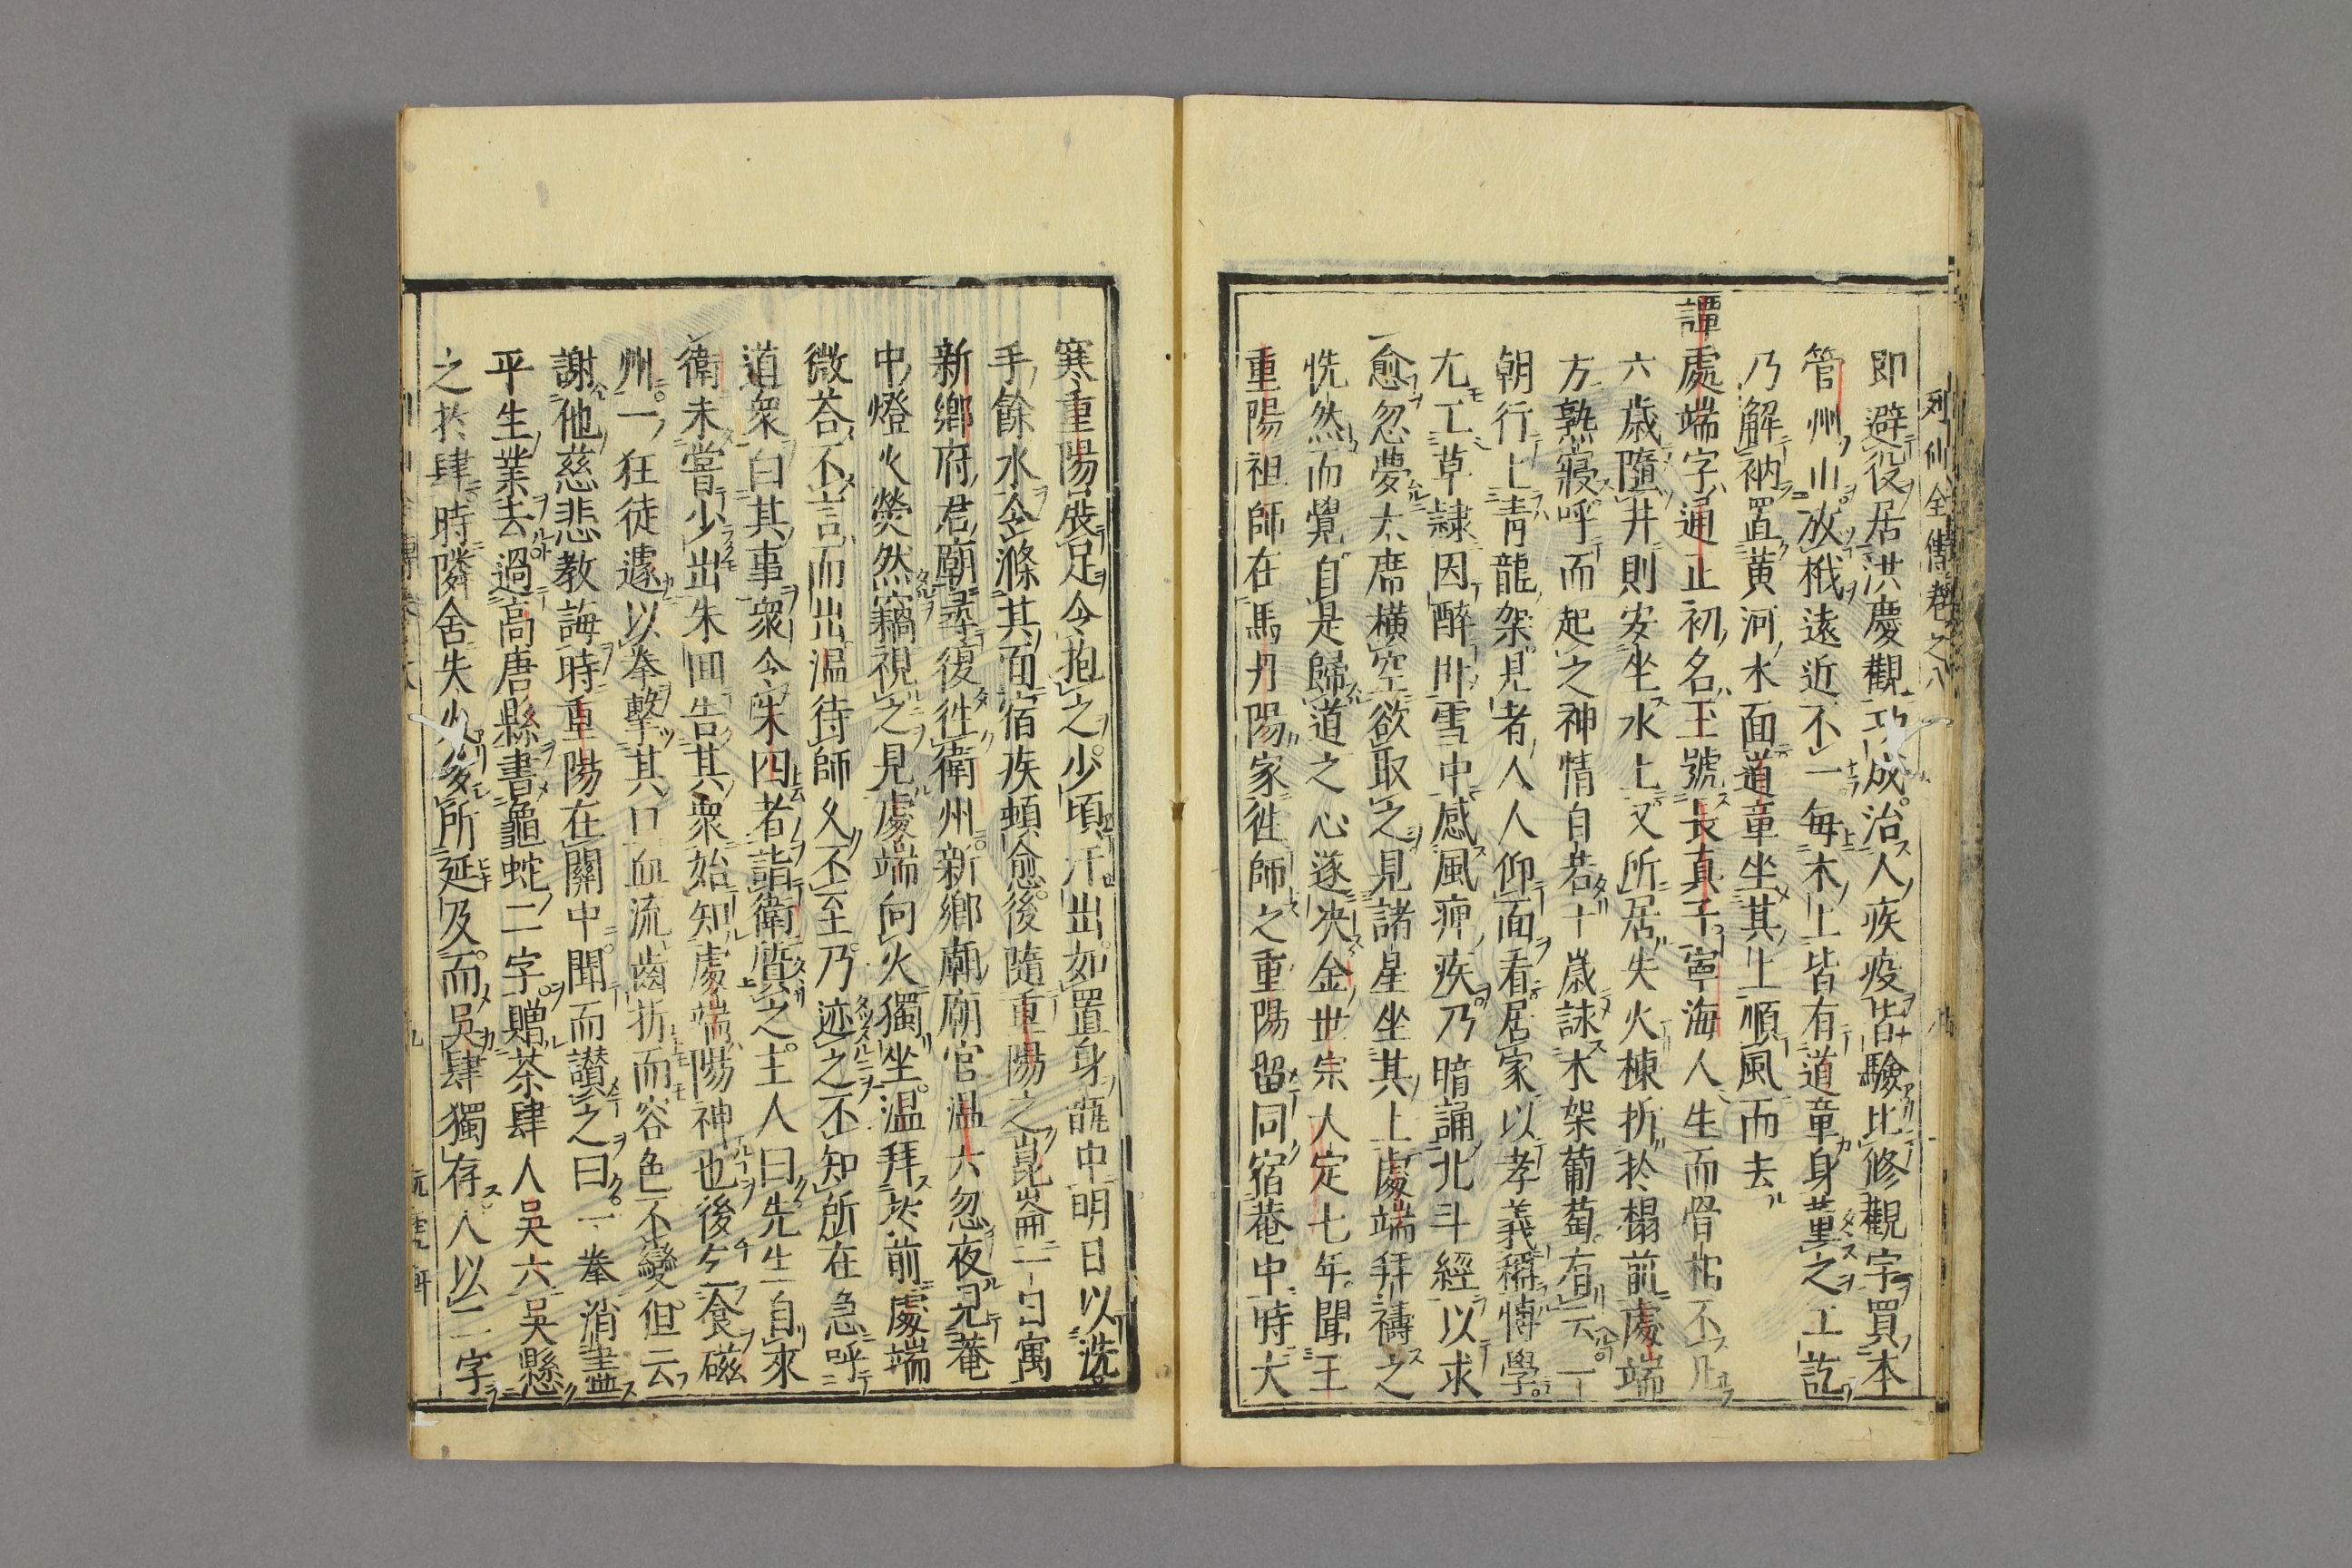 列仙全傳卷之八
即避役居洪慶觀功成治人疾疫皆驗比修觀宇買木
管州山放栰遠近不一每木上皆有道童身董之工訖
乃解衲置黃河水面道童坐其上順風而去
譚處端字通正初名玉號長真子寧海人生而骨相不凡
六歲墮井則安坐水上又所居失火棟折於榻前處端
方熟寢呼而起之神情自若十歲詠木架葡萄有云一
朝行上青龍架見者人人仰面看居家以孝義稱博學
尤工草隸因醉臥雪中感風痹疾乃暗誦北斗經以求
愈忽夢大席橫空欲取之見諸星坐其上處端拜禱之
恍然而覺自是歸道之心遂决金世宗大定七年聞王
重陽祖師在馬丹陽家徃師之重陽留同宿菴中時大
寒重陽展足令抱之少頃汗出如置身甑中明日以洗
手餘水令滌其面宿疾頓愈後隨重陽之崑崙一日寓
新鄉府君廟尋復徃衛州新鄉廟廟官温六忽夜見菴
中燈火熒然竊視之見處端向火獨坐温拜於前處端
微荅不言而出温待師久不至乃迹之不知所在急呼
道衆白其事衆令朱四者詣衛質之主人曰先生自來
衛未嘗少出朱囬告其衆始知處端陽神也後乞食磁
州一狂徒遽以拳擊其口血流齒折而容色不變但云
謝他慈悲教誨時重陽在關中聞而讃之曰一拳消盡
平生業去過高唐縣書龜蛇二字贈茶肆人吳六吳懸
之於肆時隣舍失火多所延及而吳肆獨存人以二字